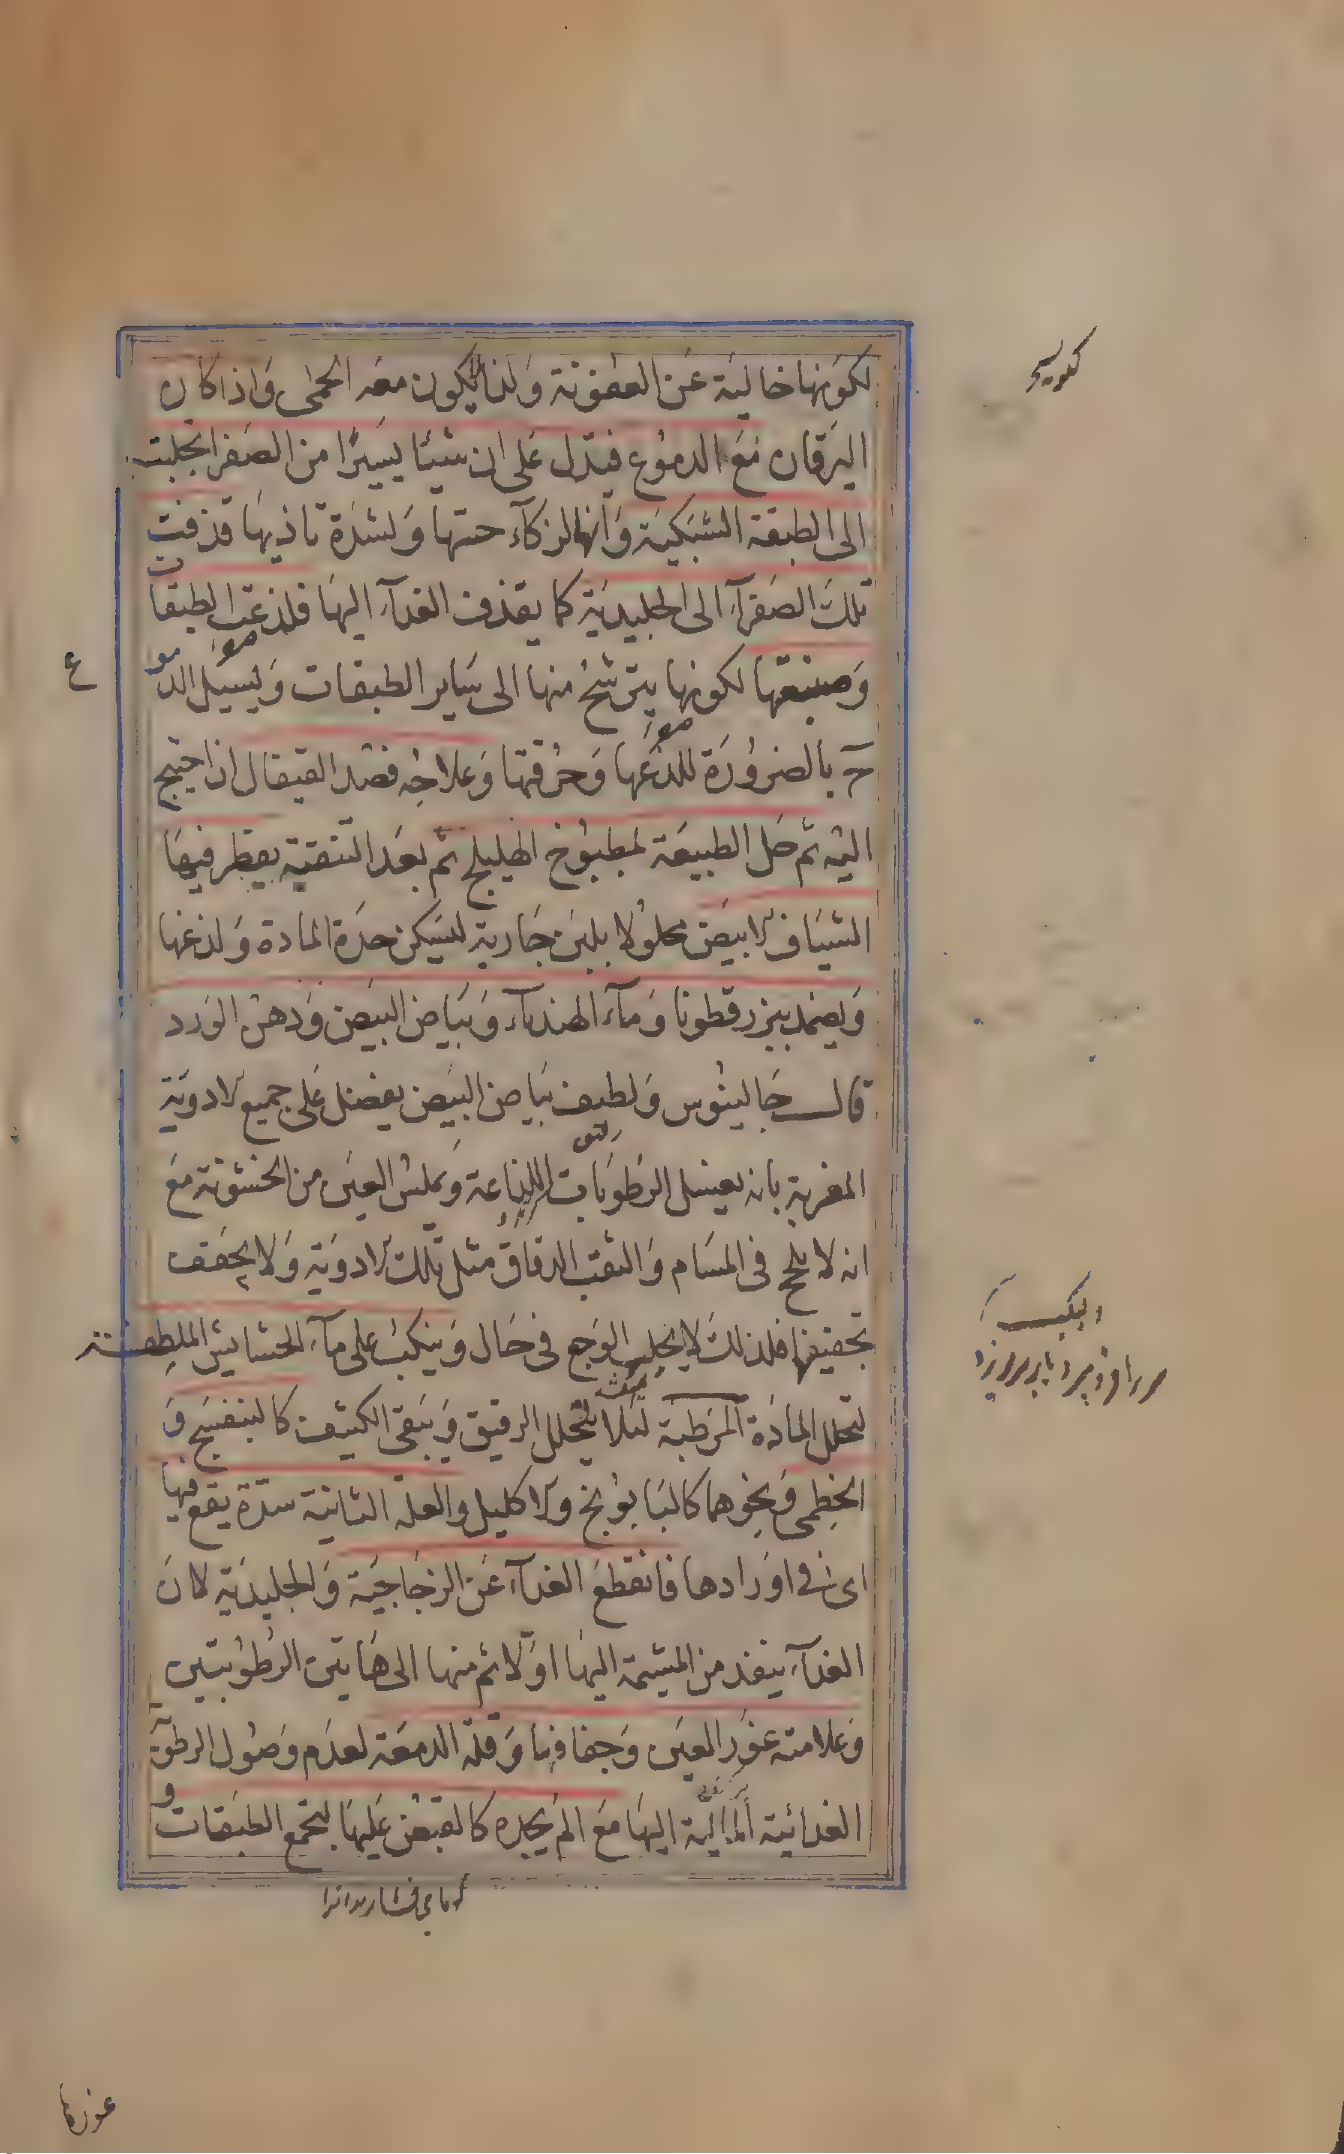 لكونها خالية عن العفونة ولذا لا يكون معه الحمى واذا كان
اليرقان مع الدموع فيدل على ان شيئا يسيرا من الصفرا انجلبت
الى الطبقة الشبكية وانها لزكآء حسها ولشدة تاذيها قذفت
تلك الصفرآء الى الجليدية كما يقذف الغدآء اليها فلذعت الطبقات
وصبغتها لكونها يترشح منها الى ساير الطبقات ويسيل الدمو
ع
حـ بالضرورة للذعها وحرقتها وعلاجه فصد القيفال ان احتيج
اليه ثم حل الطبيعة بمطبوخ الهليلج ثم بعد التنقية يقطر فيها
الشياف الابيض محلولا بلبن جارية ليسكن حدة المادة ولذعها
ويضمد ببزرقطونا ومآء الهندبآء وبياض البيض ودهن الورد
قال جالينوس ولطيف بياض البيض يفضل على جميع الادوية
المغرية بانه يغسل الرطوبات اللذاعة ويملس العين من الخشونة مع
انه لا يلحج فى المسام والثقب الدقاق مثل تلك الادوية ولا يجفف
تجفيفها فلذلك لا يجلب الوجع فى حال وينكب على مآء الحشايش الملطفة
لتحلل المادة المرطبة لئلا يتحلل الرقيق ويبقى الكثيف كالبنفسج و
الخطمى ونحوهما كالبابونج والاكليل والعلة الثانية سدة يقع فيها
اى فى اورادها فانقطع الغدآء عن الزجاجية والجليدية لان
الغدآء ينفد من المشيمة اليها اولا ثم منها الى هاتين الرطوبتين
وعلامته غور العين وجفافها وقلة الدمعة لعدم وصول الرطوبة
الغدائية المالية اليها مع الم يجده كالقبض عليها لتجمع الطبقات و
غورها